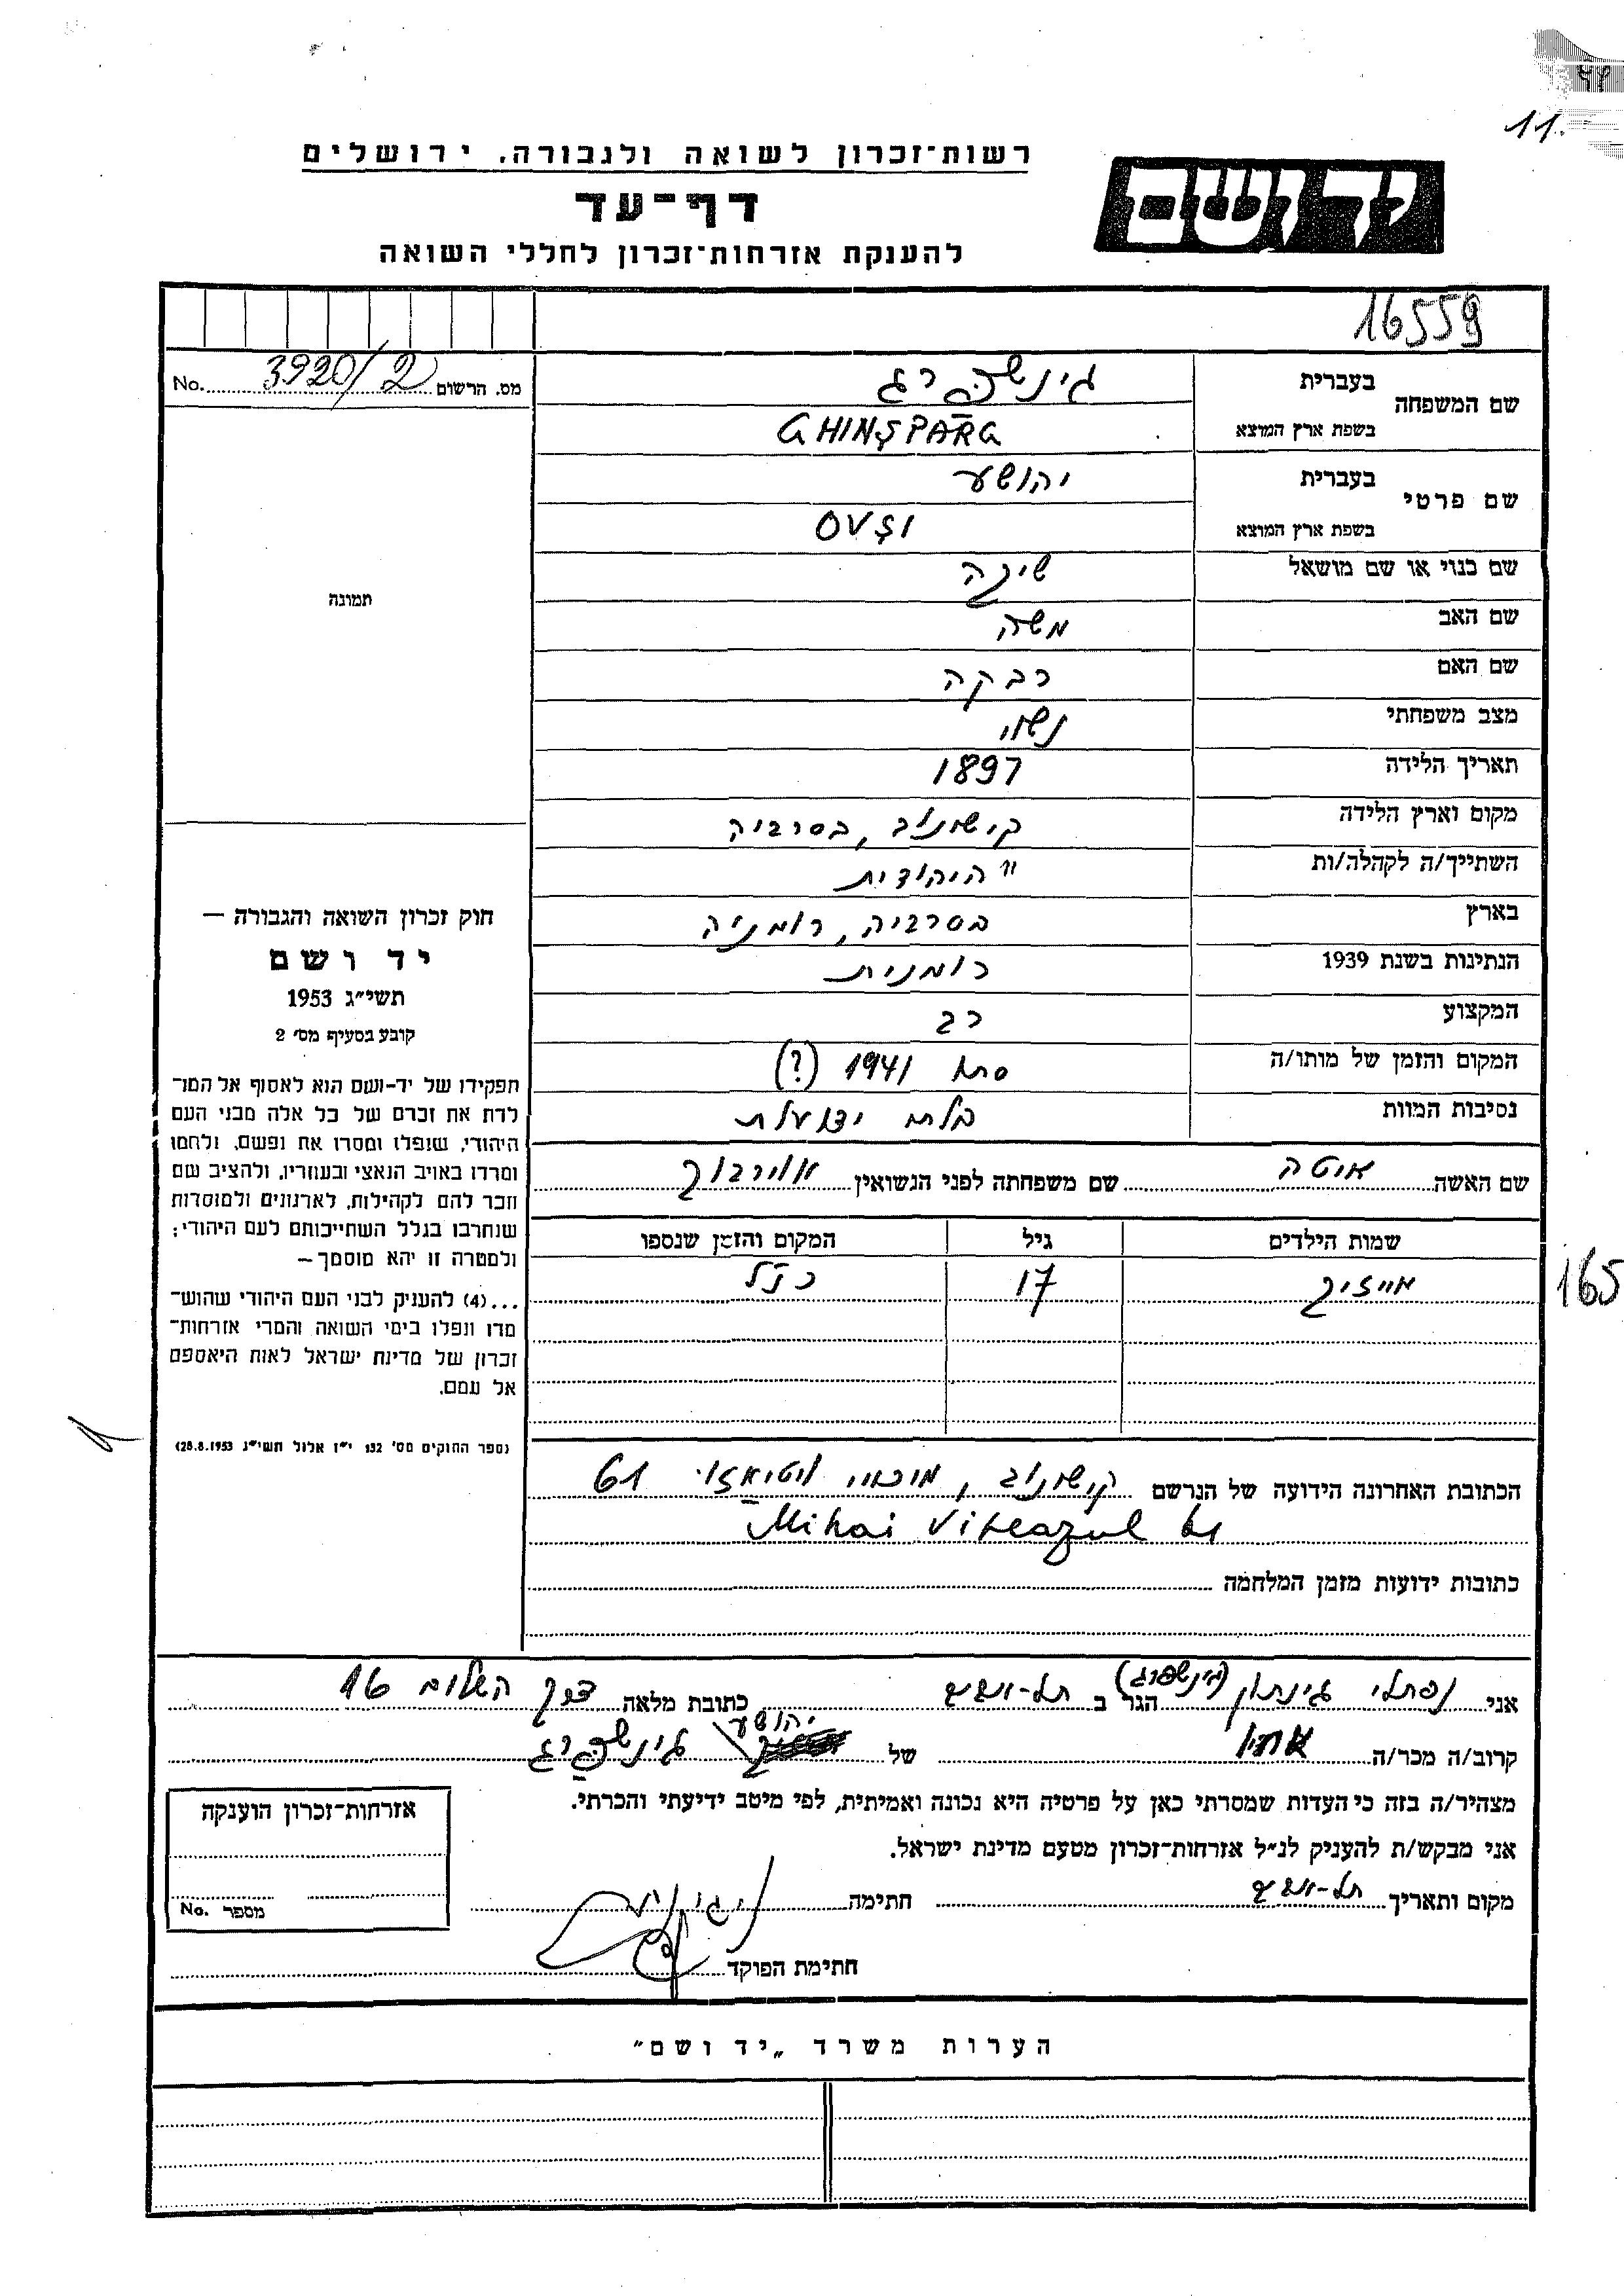 11.
רשות-זכרון לשואה ולגבורה, ירושלים
דף-עד
להענקת אזרחות-זכרון לחללי השואה
יד ושם
16559
מס. הרשום 3920/2 No.
שם המשפחה
בעברית גינשפרג
בשפת ארץ המוצא GHINŞPARG
שם פרטי
בעברית יהושע
בשפת ארץ המוצא OVŞI
שם כנוי או שם מושאל
שם האב משה
שם האם רבקה
מצב משפחתי נשוי
תאריך הלידה 1897
מקום וארץ הלידה קישונוב, בסרביה
השתייך/ה לקהלה/ות " היהודית
בארץ בסרביה, רומניה
הנתינות בשנת 1939 רומנית
המקצוע רב
המקום והזמן של מותו/ה סתו 1941 (?)
נסיבות המוות בלתי ידועות
שם האשה איטה שם משפחתה לפני הנשואין אוירבוך
שמות הילדים גיל המקום והזמן שנספו
אייזיק 17 כנ"ל
165
הכתובת האחרונה הידועה של הנרשם קישונוב, מיכאי ויטיאזו 61
Mihai Viteazul 61
כתובות ידועות מזמן המלחמה
תמונה
חוק זכרון השואה והגבורה —
יד ושם
תשי"ג 1953
קובע בסעיף מס' 2
תפקידו של יד-ושם הוא לאסוף אל המו־
לדת את זכרם של כל אלה מבני העם
היהודי, שנפלו ומסרו את נפשם, ולחמו
ומרדו באויב הנאצי ובעוזריו, ולהציב שם
וזכר להם לקהילות, לארגונים ולמוסדות
שנחרבו בגלל השתייכותם לעם היהודי;
ולמטרה זו יהא מוסמך —
...(4) להעניק לבני העם היהודי שהוש־
מדו ונפלו בימי השואה והמרי אזרחות־
זכרון של מדינת ישראל לאות היאספם
אל עמם.
(ספר החוקים מס' 132 י"ז אלול תשי"ג 28.8.1953)
אני נפתלי גינתון (גינשפרג) הגר ב תל-אביב כתובת מלאה דרך השלום 16
קרוב/ה מכר/ה אחיו של יהושע גינשפרג
מצהיר/ה בזה כי העדות שמסרתי כאן על פרטיה היא נכונה ואמיתית, לפי מיטב ידיעתי והכרתי.
אני מבקש/ת להעניק לנ"ל אזרחות-זכרון מטעם מדינת ישראל.
מקום ותאריך תל-אביב חתימה
חתימת הפוקד
אזרחות-זכרון הוענקה
מספר No.
הערות משרד „יד ושם"